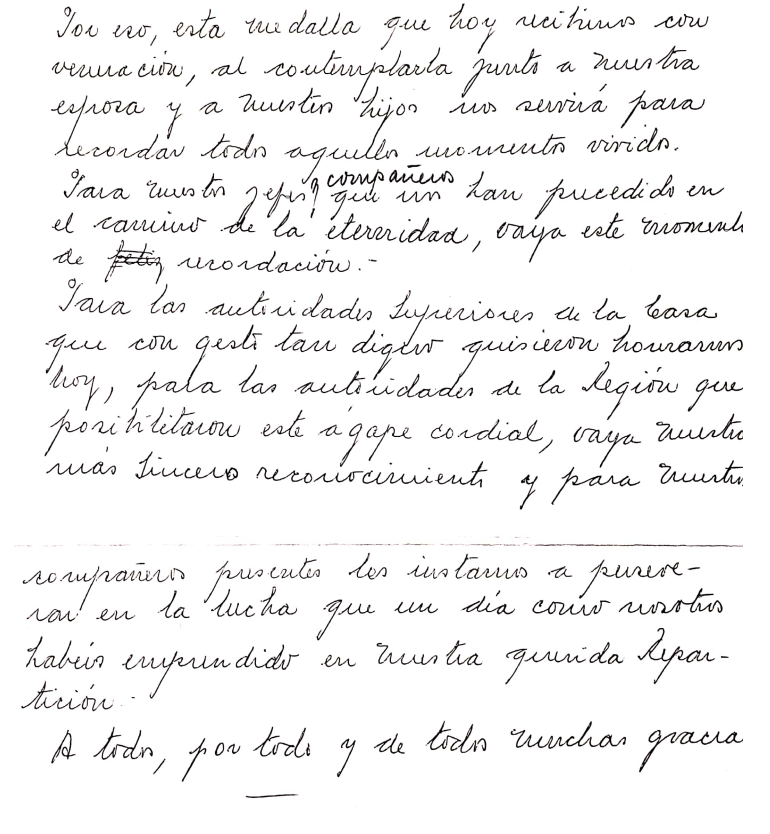 Por eso, esta medalla que hoy recibimos con
veneración, al contemplarla junto a nuestra
esposa y a nuestros hijos nos servirá para
recordar todos aquellos momentos vividos.
Para nuestros jefes y compañeros que nos han precedido en
el camino de la eternidad, vaya este moment
de recordación.-
Para las autoridades Superiores de la Casa
que con gesto tan digno quisieron honrarnos
hoy, para las autoridades de la Región que
posibilitaron este ágape cordial, vaya nuestro
más sincero reconocimiento y para nuestro
compañeros presentes los instamos a perseve-
rar en la lucha que un día como nosotros
habéis emprendido en nuestra querida Repar-
tición.-
A todos, por todo y de todos muchas gracia